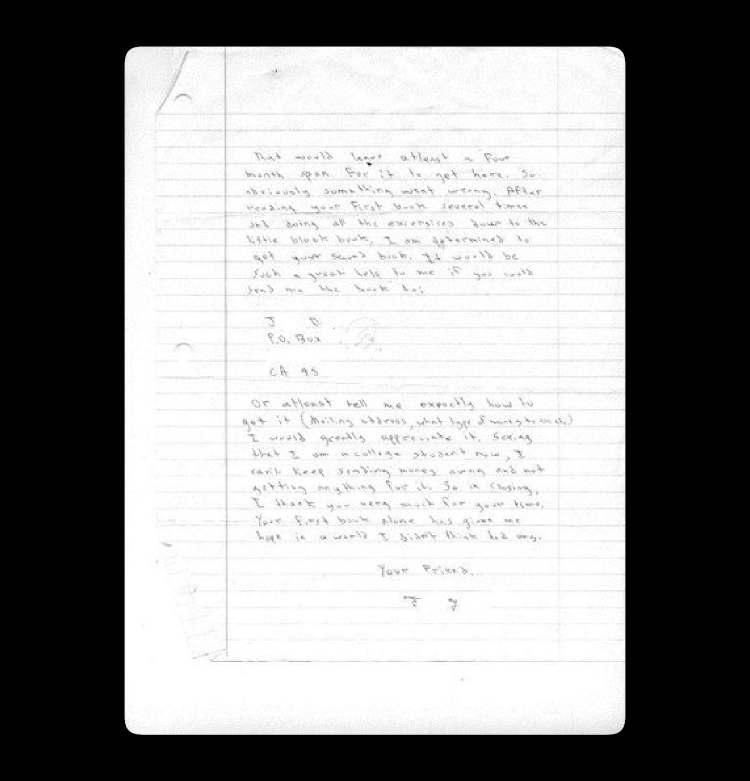 That would leave atleast a four
month span for it to get here. So
obviously something went wrong. After
reading your first book several times
and doing all the excersises down to the
little black book, I am determined to
get your second book. It would be
such a great help to me if you could
send me the book to:
J D.
P.O. Box
CA 95
Or atleast tell me expactly how to
get it (Mailing address, what type of money to send)
I would greatly appreciate it. Seeing
that I am a college student now, I
can't keep sending money away and not
getting anything for it. So in closing,
I thank you very much for your time.
Your first book alone has given me
hope in a world I didn't think had any.
Your Friend,
J y